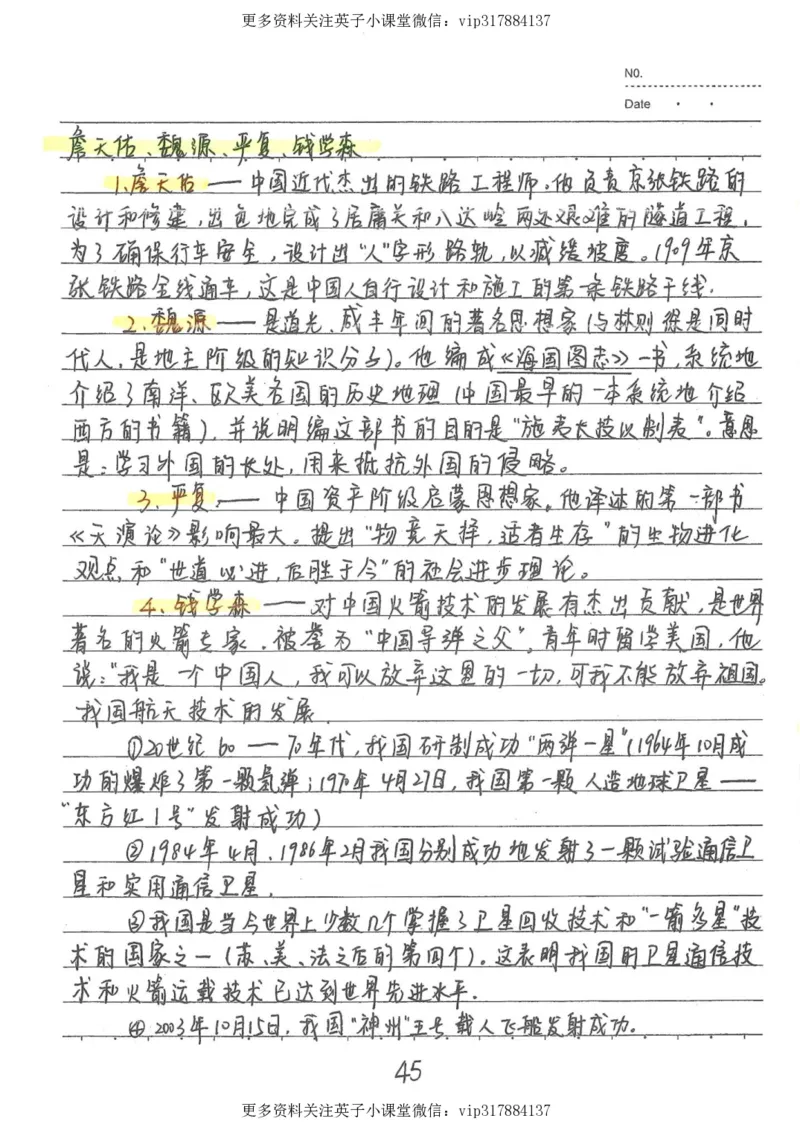 更多资料关注英子小课堂微信：vip317884137
NO.
Date
詹天佑、魏源、严复、钱学森
1.詹天佑——中国近代杰出的铁路工程师。他负责京张铁路的
设计和修建，出色地完成了居庸关和八达岭两处艰难的隧道工程，
为了确保行车安全，设计出“人”字形路轨，以减缓坡度。1909年京
张铁路全线通车，这是中国人自行设计和施工的第一条铁路干线.
2.魏源——是道光、咸丰年间的著名思想家(与林则徐是同时
代人，是地主阶级的知识分子)。他编成《海国图志》一书，系统地
介绍了南洋、欧美各国的历史地理(中国最早的一本系统地介绍
西方的书籍)，并说明编这部书的目的是“施夷长技以制夷”。意思
是：学习外国的长处，用来抵抗外国的侵略。
3.严复.——中国资产阶级启蒙思想家。他译述的第一部书
《天演论》影响最大。提出“物竟天择，适者生存”的生物进化
观点和“世道必进，后胜于今”的社会进步理论。
4.钱学森——对中国火箭技术的发展有杰出贡献，是世界
著名的火箭专家.被誉为“中国导弹之父”。青年时留学美国，他
说：“我是一个中国人，我可以放弃这里的一切，可我不能放弃祖国。
我国航天技术的发展.
①20世纪60——70年代，我国研制成功“两弹一星”(1964年10月成
功的爆炸了第一颗氢弹；1970年4月27日，我国第一颗人造地球卫星——
“东方红1号”发射成功)
②1984年4月、1986年2月我国分别成功地发射了一颗试验通信卫
星和实用通信卫星.
③我国是当今世界上少数几个掌握了卫星回收技术和“一箭多星”技
术的国家之一(苏、美、法之后的第四个)。这表明我国的卫星通信技
术和火箭运载技术已达到世界先进水平.
④2003年10月15日，我国“神州”五号载人飞船发射成功。
45
更多资料关注英子小课堂微信：vip317884137